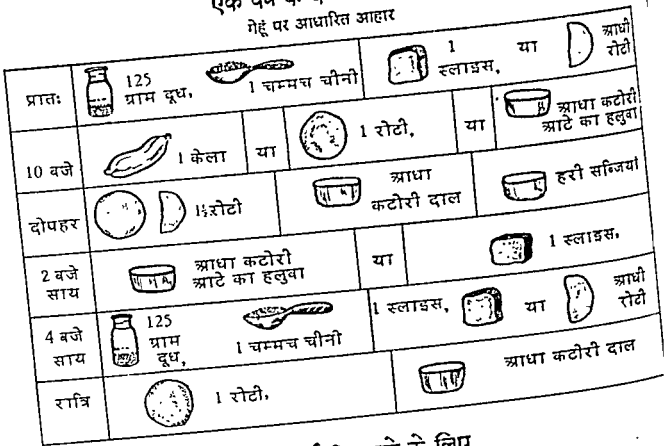 एक
गेहूं पर आधारित आहार
प्रातः 125 ग्राम दूध, 1 चम्मच चीनी 1 स्लाइस, या आधी रोटी
10 बजे 1 केला या 1 रोटी, या आधा कटोरी आटे का हलुवा
दोपहर 1½रोटी आधा कटोरी दाल हरी सब्जियां
2 बजे साय आधा कटोरी आटे का हलुवा या 1 स्लाइस,
4 बजे साय 125 ग्राम दूध, 1 चम्मच चीनी 1 स्लाइस, या आधी रोटी
रात्रि 1 रोटी, आधा कटोरी दाल
के लिए